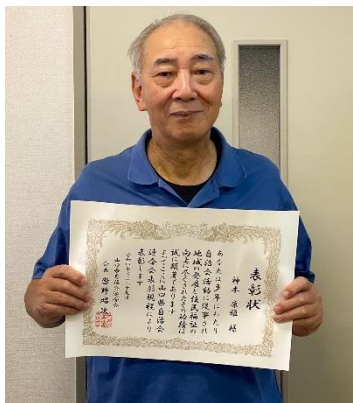 表彰状
神本 康雅 様
あなたは多年にわたり
自治会活動に従事され
地域の発展と住民福祉の
向上に尽くされたその功績は
誠に顕著であります
よってここに山口県自治会
連合会表彰規程により
表彰します
山口県自治会連合会
会長